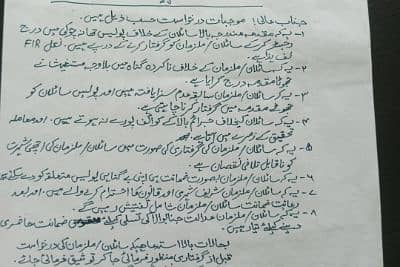 جناب عالی! موجبات درخواست حسب ذیل ہیں۔
۱- یہ کہ مقدمہ مندرجہ بالا سائلان کے خلاف پولیس تھانہ چوکی میں درج
رجسٹر کرکے سائلان/ملزمان کو گرفتار کرنے کے درپے ہیں۔ نقل FIR
لف ہذا ہے۔
۲- یہ کہ سائلان/ملزمان کے خلاف ناکردہ گناہ میں بلاوجہ مستغیث نے
جھوٹا مقدمہ درج کرایا ہے۔
۳- یہ کہ سائلان/ملزمان سابقہ عدم سزا یافتہ ہیں اور پولیس سائلان کو
جھوٹے مقدمہ میں گرفتار کرنا چاہتی ہے۔
۴- یہ کہ سائلان کیخلاف جرائم بالا کے کوائف پورے نہ ہوتے ہیں۔ اور معاملہ
تحقیق کے زمرے میں آتا ہے۔
۵- یہ کہ سائلان/ملزمان کی گرفتاری کی صورت میں سائلان/ملزمان کی اچھی شہرت
کو ناقابل تلافی نقصان ہے۔
۶- یہ کہ سائلان/ملزمان بصورت ضمانت ہی اپنی بے گناہی پولیس متعلقہ کو دے سکتے ہیں
۷- یہ کہ سائلان/ملزمان شریف شہری اور قانون کا احترام کرنے والے ہیں۔ اور بعد
رعایت ضمانت سائلان/ملزمان شامل تفتیش رہیں گے۔
۸- یہ کہ سائلان/ملزمان عدالت جناب والا کی تسلی کیلئے ضمانت حاضری
دینے کیلئے تیار ہیں۔
بحالات بالا استدعا ہے کہ سائلان/ملزمان کی درخواست
قبل از گرفتاری منظور فرمائی جا کر توثیق فرمائی جائے۔